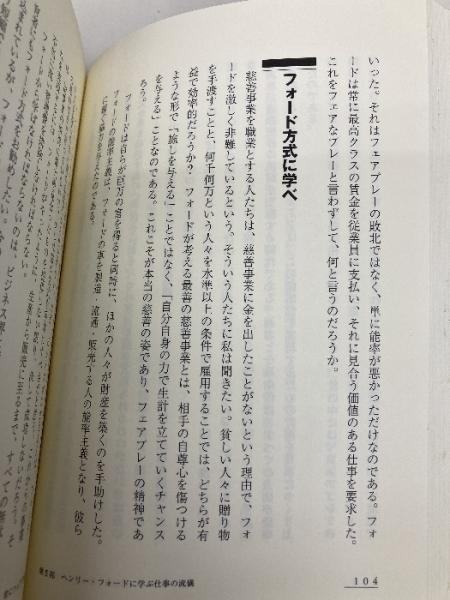 いった。それはフェアプレーの敗北ではなく、単に能率が悪かっただけなのである。フォ
ードは常に最高クラスの賃金を従業員に支払い、それに見合う価値のある仕事を要求した。
これをフェアなプレーと言わずして、何と言うのだろうか。
フォード方式に学べ
慈善事業を職業とする人たちは、慈善事業に金を出したことがないという理由で、フォ
ードを激しく非難しているという。そういう人たちに私は聞きたい。貧しい人々に贈り物
を手渡すことと、何千何万という人々を水準以上の条件で雇用することでは、どちらが有
益で効率的だろうか? フォードが考える最善の慈善事業とは、相手の自尊心を傷つける
ような形で「施しを与える」ことではなく、「自分自身の力で生計を立てていくチャンス
を与える」ことなのである。これこそが本当の慈善の姿であり、フェアプレーの精神であ
ろう。
フォードは自らが巨万の富を得ると同時に、ほかの人々が財産を築くのを手助けした。
フォードの能率主義は、フォードの車を製造・流通・販売する人の能率主義となり、彼ら
に富を分け与えたのである。
フォード方式をお勧めしたい。
ならないのは、ビジネス
104
ヘンリー・フォードに学ぶ仕事の流儀